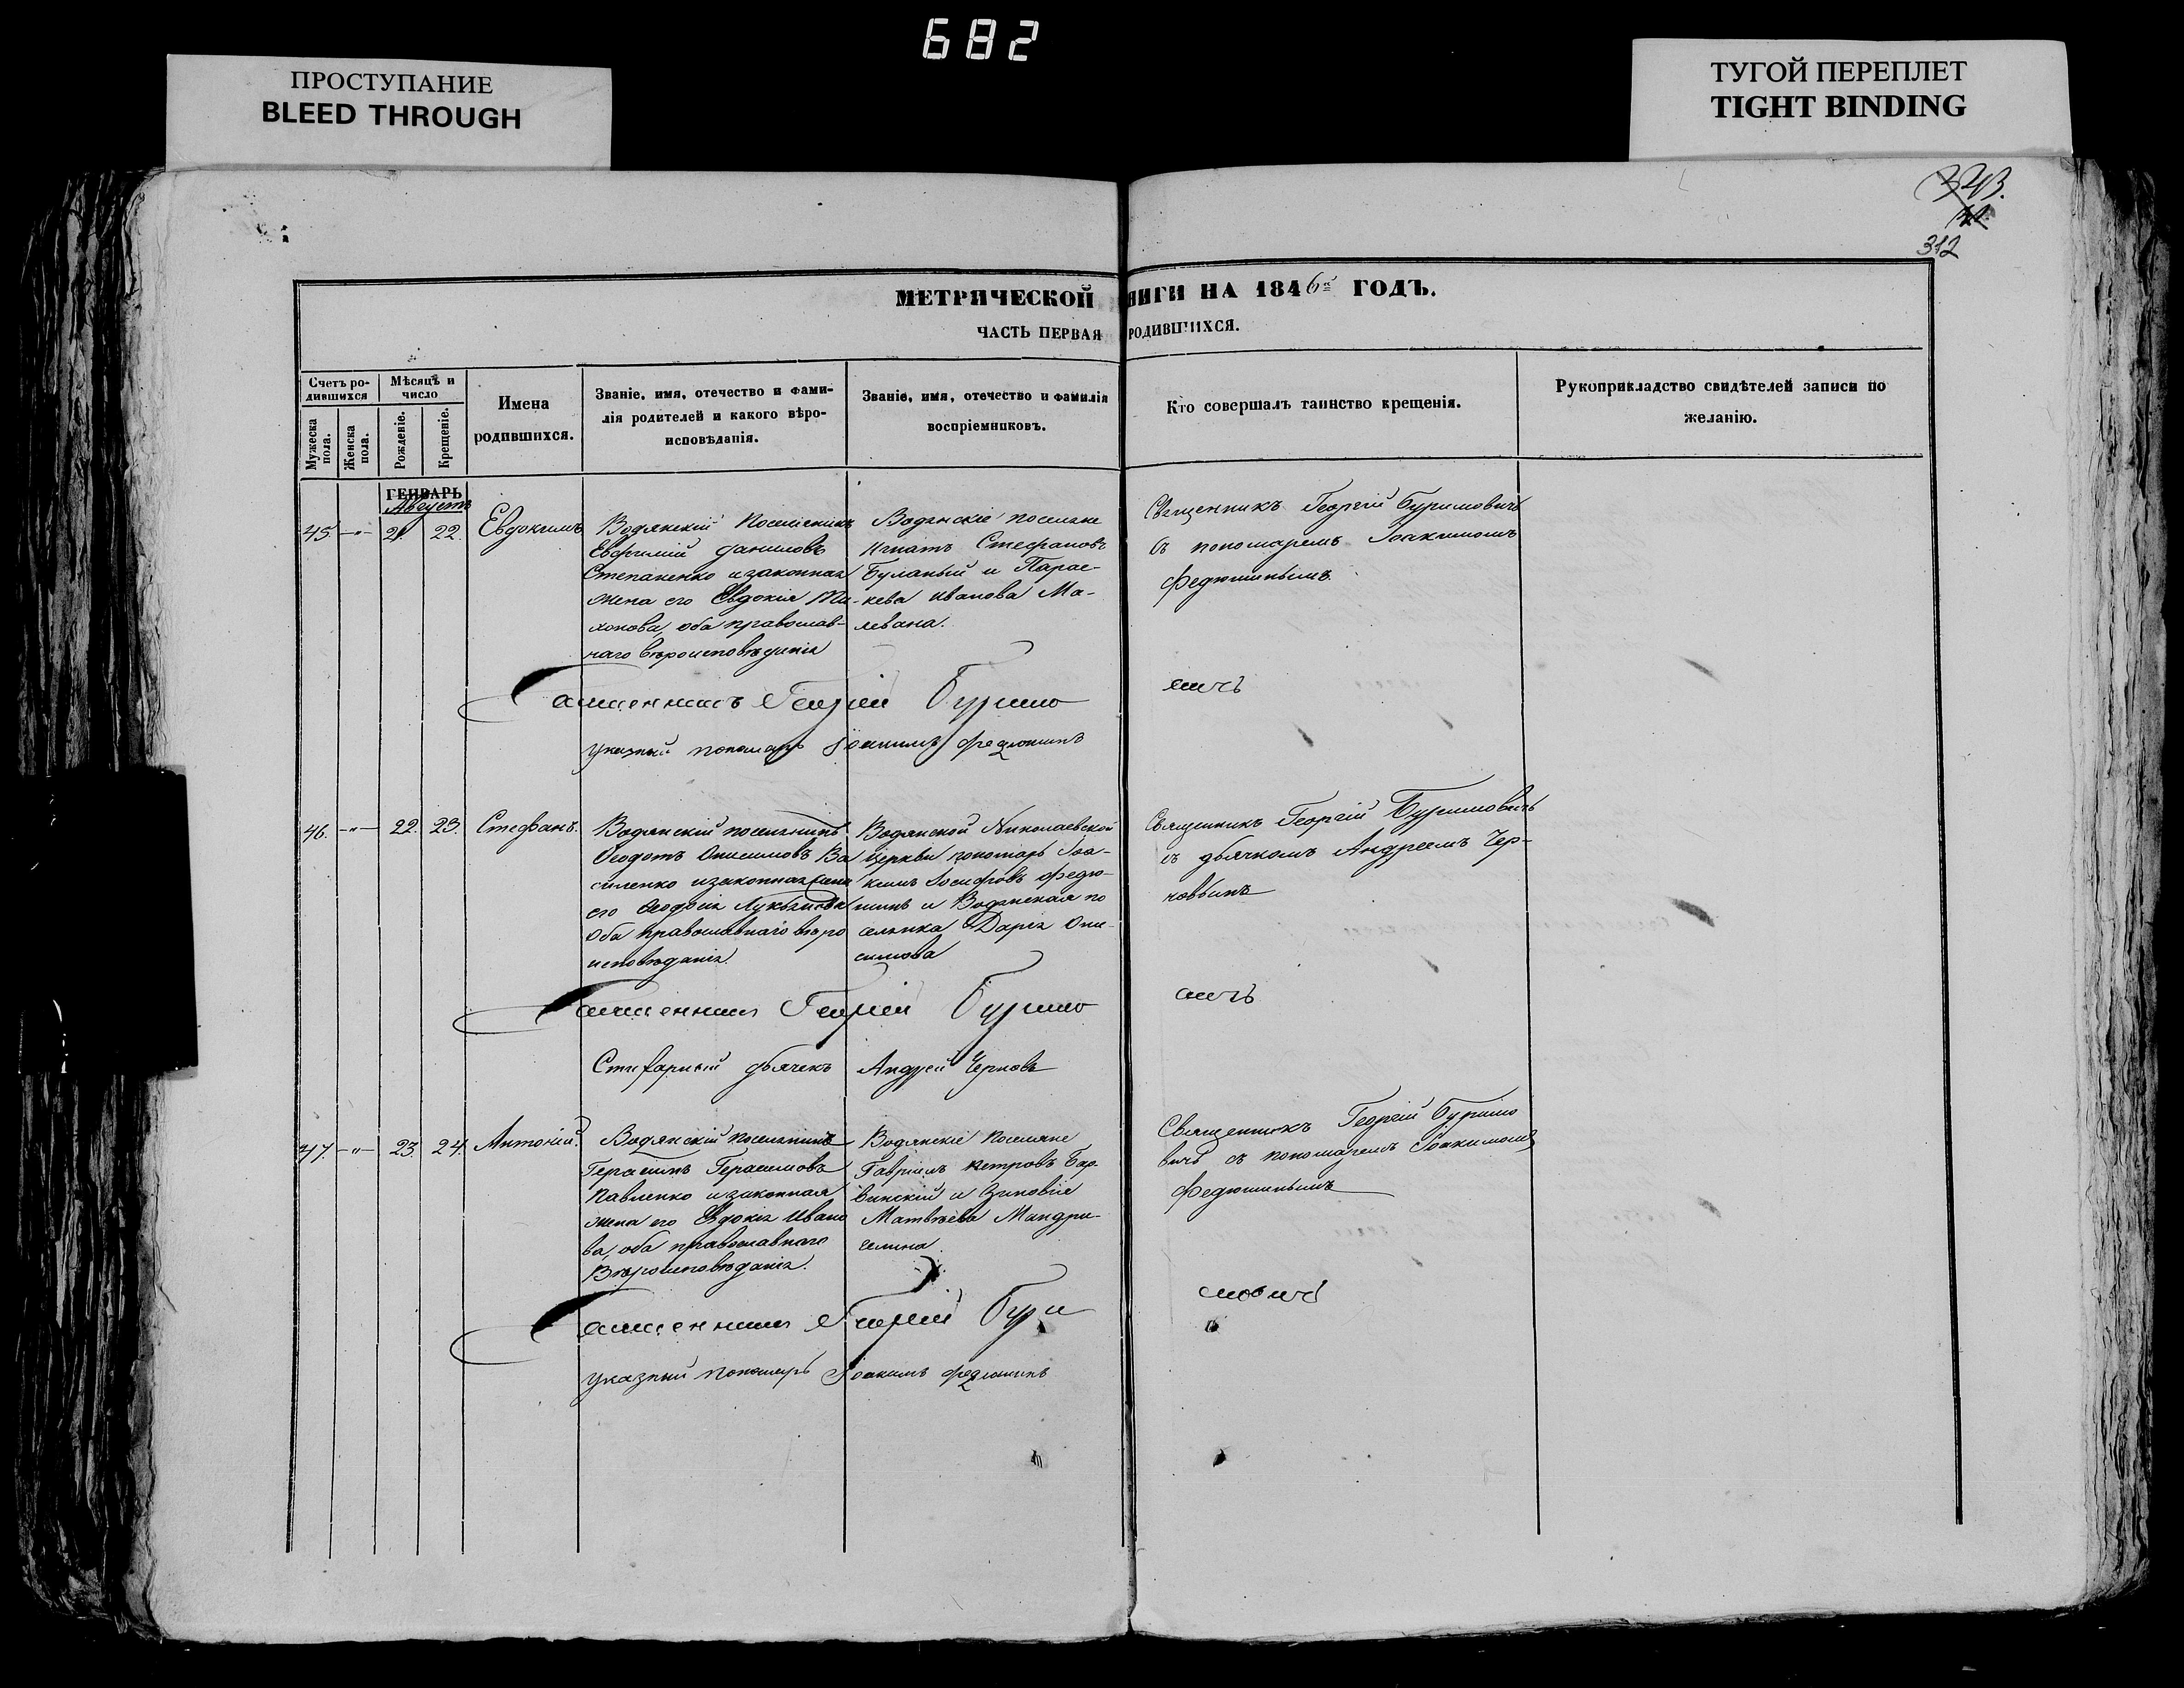 682
ПРОСТУПАНИЕ
BLEED THROUGH
ТУГОЙ ПЕРЕПЛЕТ
TIGHT BINDING
312
МЕТРИЧЕСКОЙ НИГИ НА 1846 ГОДЪ.
ЧАСТЬ ПЕРВАЯ РОДИВШИХСЯ.
Счетъ ро-
дившихся
Мѣсяцъ и
число
Мужеска
пола.
Женска
пола.
Рожденіе.
Крещеніе.
Имена
родившихся.
Званіе, имя, отечество и фами-
лія родителей и какого вѣро-
исповѣданія.
Званіе, имя, отечество и фамилія
воспріемниковъ.
Кто совершалъ таинство крещенія.
Рукоприкладство свидѣтелей записи по
желанію.
ГЕНВАРЬ
Августъ
45. -"- 21. 22. Евдокимъ
Водянскій Поселянинъ
Евфимій Даниловъ
Степаненко и законная
жена его Евдокія Ти-
хонова, оба православ-
наго вѣроисповѣданія
Водянскіе поселяне
Игнатъ Стефановъ
Буланый и Парас-
кева Иванова Ма-
левана.
Священникъ Георгій Буримовичъ
съ пономаремъ Іоакимомъ
Федюшинымъ
Священникъ Георгій Буримо
вичъ
Указный пономарь Іоакимъ Федюшинъ
46. -"- 22. 23. Стефанъ.
Водянскій поселянинъ
Ѳеодотъ Онисимовъ Ва
силенко и законная жена
его Ѳеодосія Лукьянова
оба православнаго вѣро
исповѣданія.
Водянской Николаевской
церкви пономарь Іоа-
кимъ Іосифовъ Федю-
шинъ и Водянская по
селянка Дарія Они-
симова
Священникъ Георгій Буримовичъ
съ дьячкомъ Андреемъ Чер-
новымъ
Священникъ Георгій Буримо
вичъ
Стихарный дьячекъ Андрей Черновъ
47. -"- 23. 24. Антоній.
Водянскій поселянинъ
Герасимъ Герасимовъ
Павленко и законная
жена его Евдокія Ивано
ва, оба православнаго
Вѣроисповѣданія.
Водянскіе Поселяне
Гавріилъ Петровъ Бар
винскій и Зиновія
Матвѣева Мандри-
Священникъ Георгій Буримо
вичъ съ пономаремъ Іоакимомъ
Федюшинымъ
Священникъ Георгій Бури
мовичъ
Указный пономарь Іоакимъ Федюшинъ